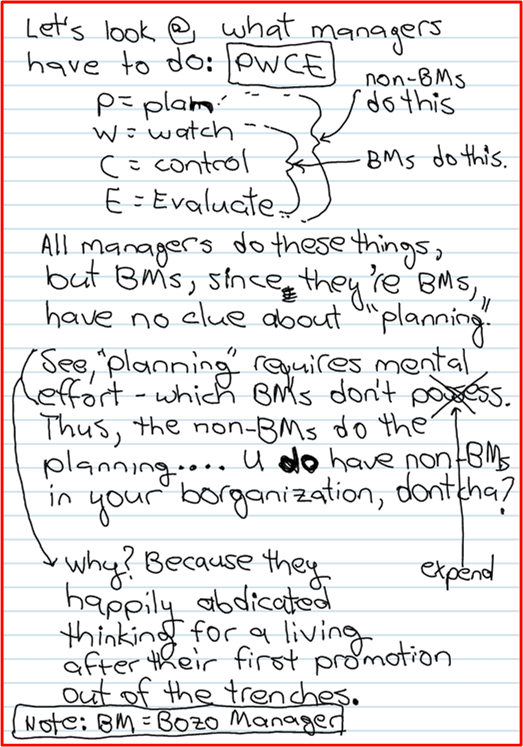 Let's look @ what managers
have to do: PWCE
P = plan
non-BMs
do this
W = watch
C = control
BMs do this.
E = Evaluate
All managers do these things,
but BMs, since they're BMs,
have no clue about "planning."
See, "planning" requires mental
effort - which BMs don't possess.
Thus, the non-BMs do the
planning.... U do have non-BMs
in your borganization, dontcha?
expend
why? Because they
happily abdicated
thinking for a living
after their first promotion
out of the trenches.
Note: BM = Bozo Manager